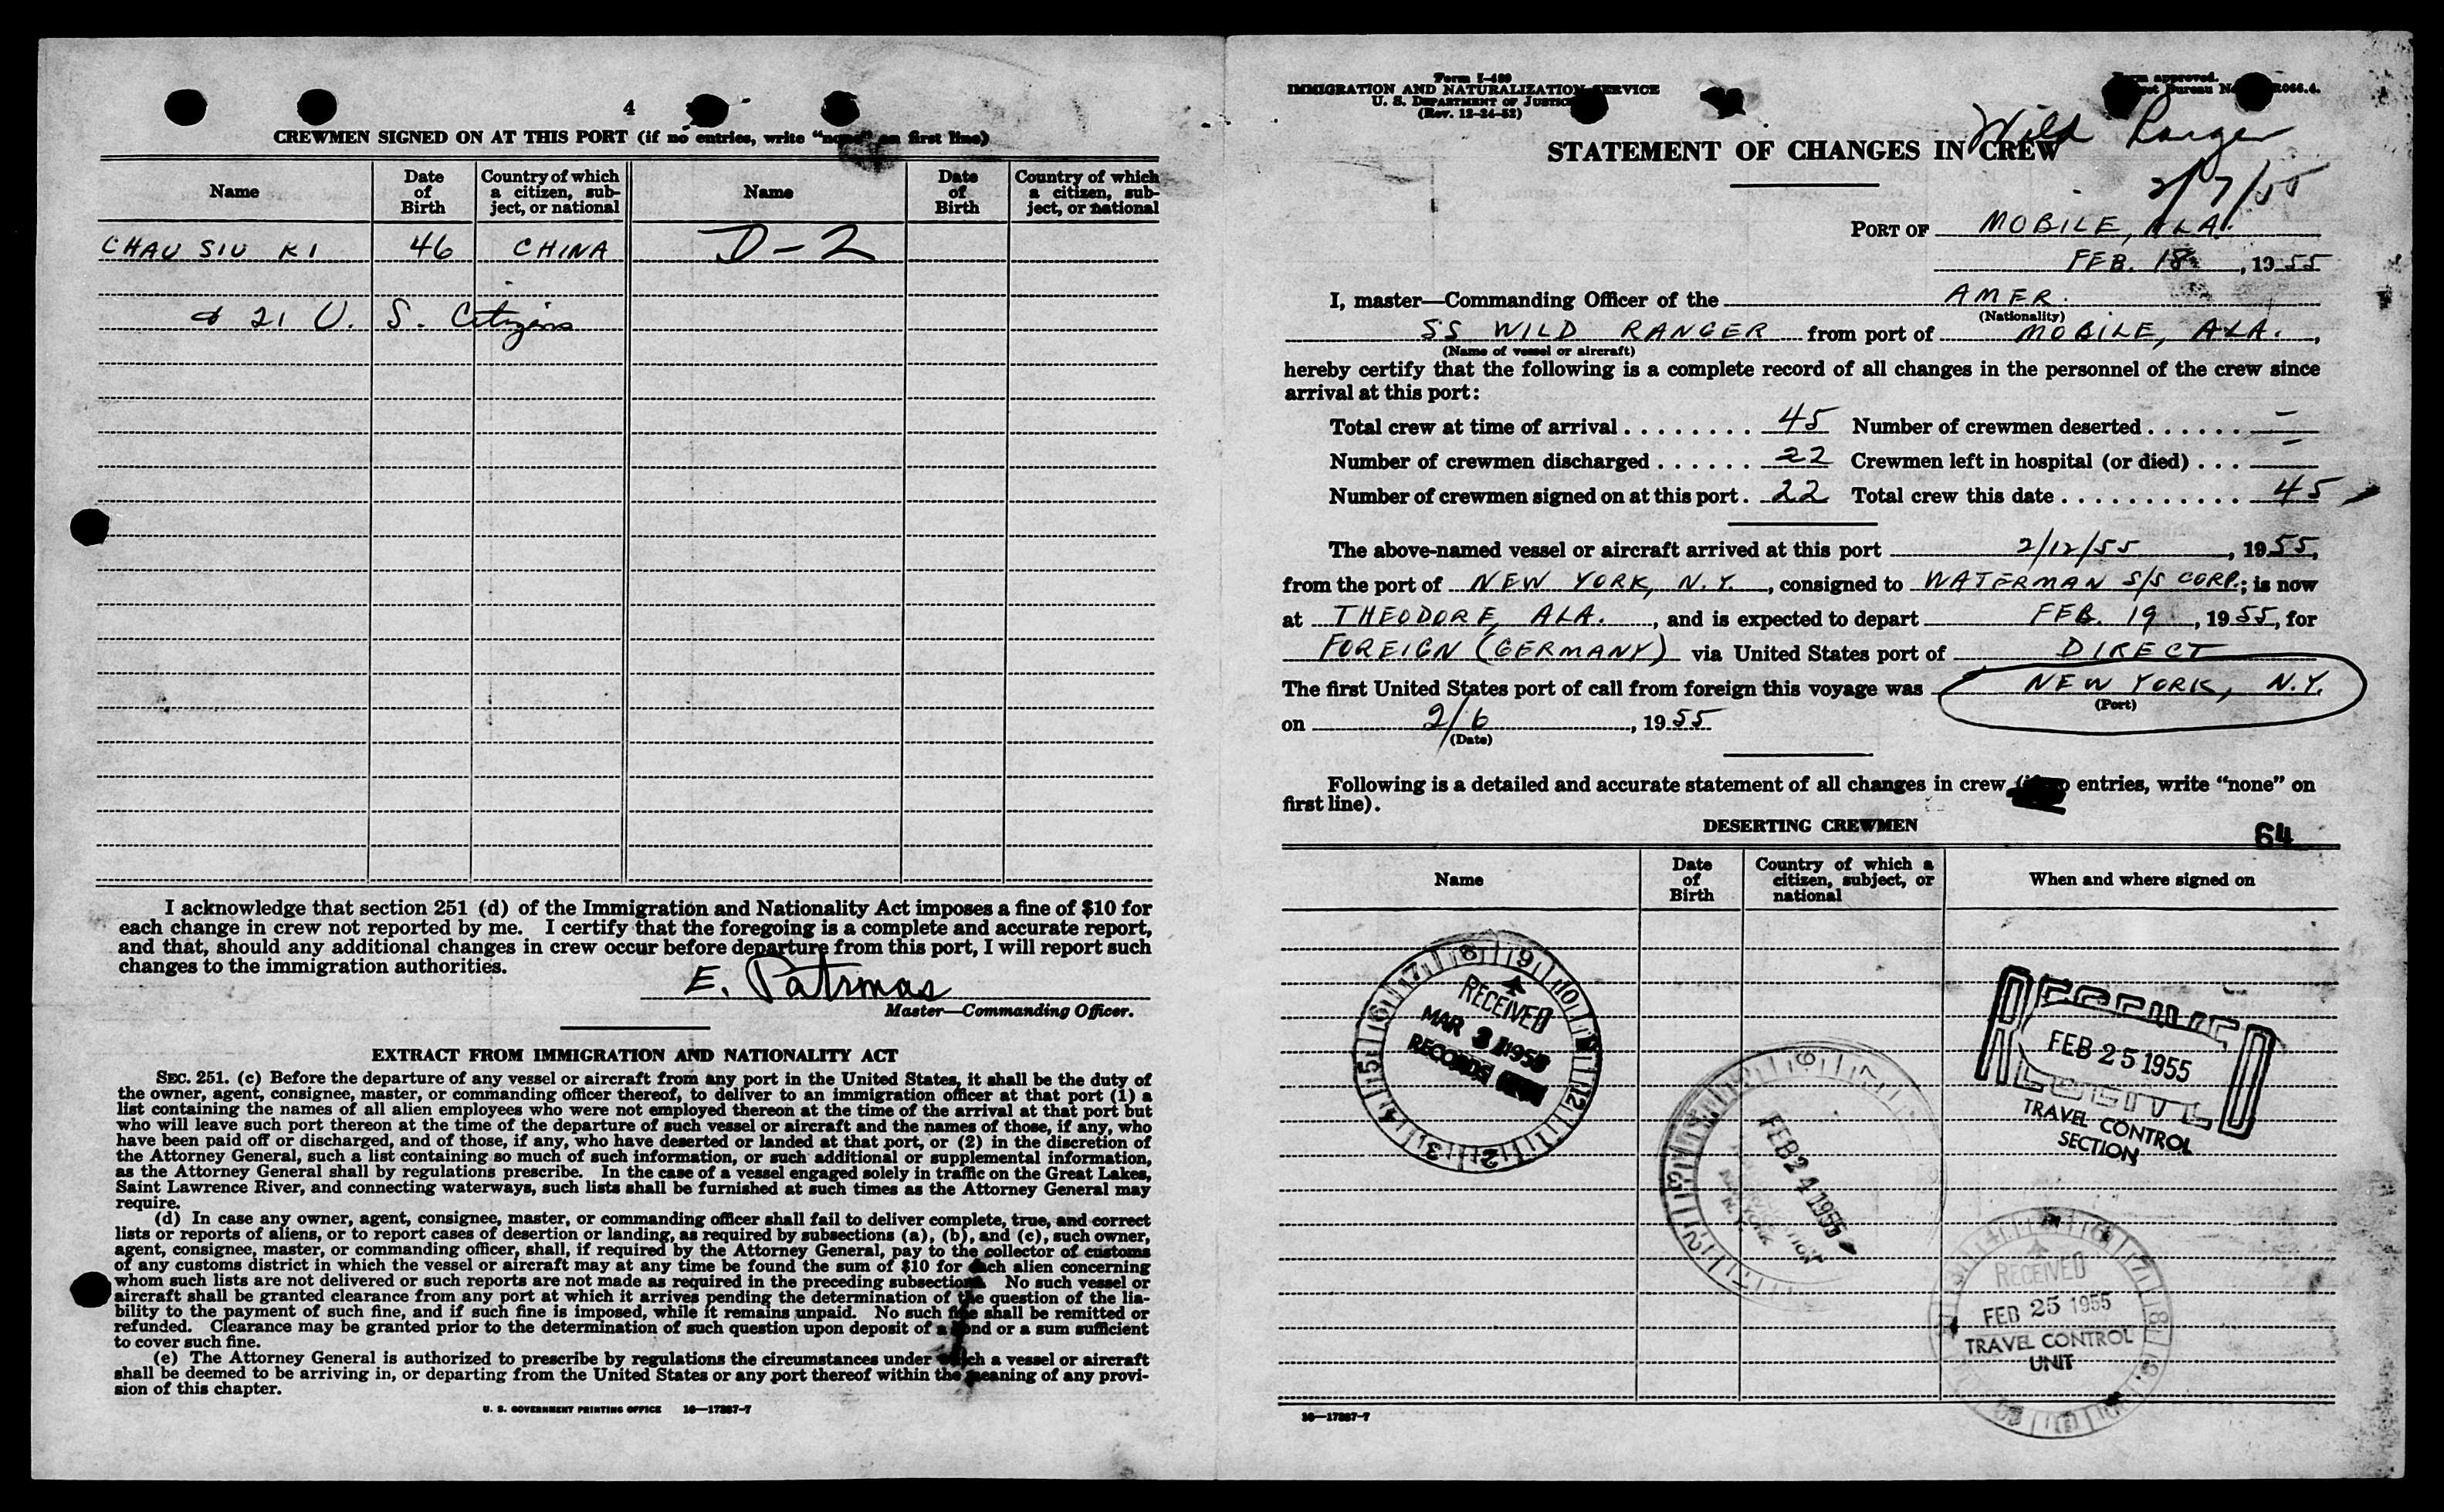 4
CREWMEN SIGNED ON AT THIS PORT (if no entries, write "none" on first line)
Name
Date of Birth
Country of which a citizen, subject, or national
Name
Date of Birth
Country of which a citizen, subject, or national
CHAU SIU KI 46 CHINA D-2
& 21 U. S. Citizens
I acknowledge that section 251 (d) of the Immigration and Nationality Act imposes a fine of $10 for
each change in crew not reported by me. I certify that the foregoing is a complete and accurate report,
and that, should any additional changes in crew occur before departure from this port, I will report such
changes to the immigration authorities.
E. Patrmas
Master—Commanding Officer.
EXTRACT FROM IMMIGRATION AND NATIONALITY ACT
SEC. 251. (c) Before the departure of any vessel or aircraft from any port in the United States, it shall be the duty of
the owner, agent, consignee, master, or commanding officer thereof, to deliver to an immigration officer at that port (1) a
list containing the names of all alien employees who were not employed thereon at the time of the arrival at that port but
who will leave such port thereon at the time of the departure of such vessel or aircraft and the names of those, if any, who
have been paid off or discharged, and of those, if any, who have deserted or landed at that port, or (2) in the discretion of
the Attorney General, such a list containing so much of such information, or such additional or supplemental information,
as the Attorney General shall by regulations prescribe. In the case of a vessel engaged solely in traffic on the Great Lakes,
Saint Lawrence River, and connecting waterways, such lists shall be furnished at such times as the Attorney General may
require.
(d) In case any owner, agent, consignee, master, or commanding officer shall fail to deliver complete, true, and correct
lists or reports of aliens, or to report cases of desertion or landing, as required by subsections (a), (b), and (c), such owner,
agent, consignee, master, or commanding officer, shall, if required by the Attorney General, pay to the collector of customs
of any customs district in which the vessel or aircraft may at any time be found the sum of $10 for each alien concerning
whom such lists are not delivered or such reports are not made as required in the preceding subsections. No such vessel or
aircraft shall be granted clearance from any port at which it arrives pending the determination of the question of the lia-
bility to the payment of such fine, and if such fine is imposed, while it remains unpaid. No such fine shall be remitted or
refunded. Clearance may be granted prior to the determination of such question upon deposit of a bond or a sum sufficient
to cover such fine.
(e) The Attorney General is authorized to prescribe by regulations the circumstances under which a vessel or aircraft
shall be deemed to be arriving in, or departing from the United States or any port thereof within the meaning of any provi-
sion of this chapter.
U. S. GOVERNMENT PRINTING OFFICE 16—17387-7
Form I-489
IMMIGRATION AND NATURALIZATION SERVICE
U. S. DEPARTMENT OF JUSTICE
(Rev. 12-24-52)
Form approved.
Budget Bureau No. R066.4.
Wild Ranger
STATEMENT OF CHANGES IN CREW
2/7/55
PORT OF MOBILE, ALA.
FEB. 18, 1955
I, master—Commanding Officer of the AMER.
(Nationality)
SS WILD RANGER from port of MOBILE, ALA.,
(Name of vessel or aircraft)
hereby certify that the following is a complete record of all changes in the personnel of the crew since
arrival at this port:
Total crew at time of arrival ........ 45 Number of crewmen deserted ...... —
Number of crewmen discharged ...... 22 Crewmen left in hospital (or died) ... —
Number of crewmen signed on at this port . 22 Total crew this date ............ 45
The above-named vessel or aircraft arrived at this port 2/12/55, 1955,
from the port of NEW YORK, N.Y., consigned to WATERMAN S/S CORP.; is now
at THEODORE, ALA., and is expected to depart FEB. 19, 1955, for
FOREIGN (GERMANY) via United States port of DIRECT
The first United States port of call from foreign this voyage was NEW YORK, N.Y.
(Port)
on 2/6, 1955
(Date)
Following is a detailed and accurate statement of all changes in crew (if no entries, write "none" on
first line).
DESERTING CREWMEN
64
Name
Date of Birth
Country of which a citizen, subject, or national
When and where signed on
RECEIVED
MAR 3 1955
RECORDS
FEB 24 1955
FEB 25 1955
TRAVEL CONTROL
SECTION
RECEIVED
FEB 25 1955
TRAVEL CONTROL
UNIT
16—17387-7